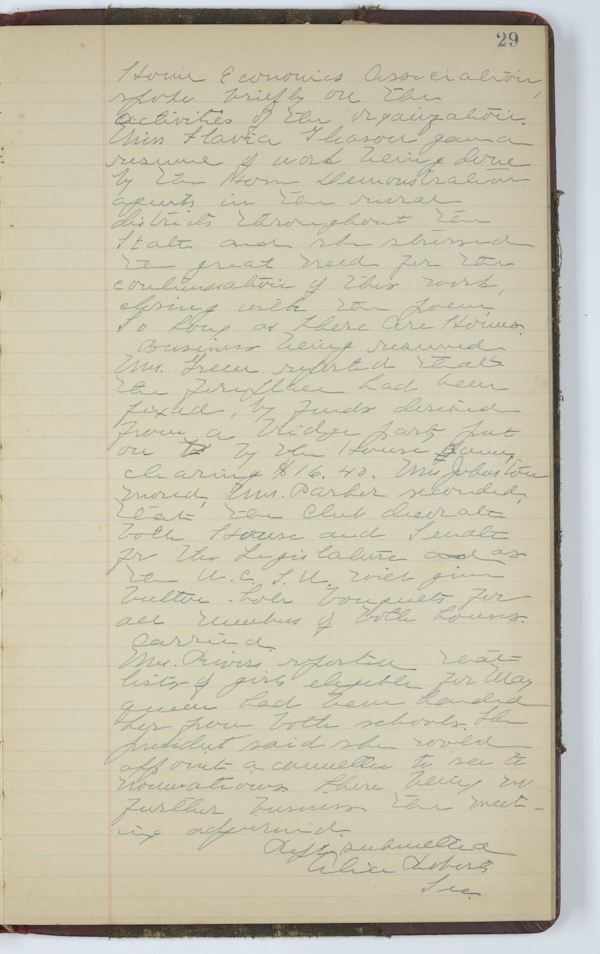 29
Home Economics Association,
spoke briefly on the
activities of the organization.
Miss Flavia Gleason gave a
resume of work being done
by the Home Demonstration
agents in the rural
districts throughout the
State and she stressed
the great need for the
continuation of this work,
closing with the poem,
So Long as There Are Homes.
Business being resumed
Mrs. Green reported that
the fireplace had been
fixed, by funds derived
from a bridge party put
on by the House
clearing $16.40. Mrs Johnston
moved, Mrs. Parker seconded,
that the Club decorate
both House and Senate
for the Legislature as
the U. C. will give
button-hole bouquets for
all members of both houses.
Carried.
Mrs. Rivers reported that
lists of girls eligible for May
queen had been handed
her from both schools. The
president said she would
appoint a committee to see to
nominations. There being no
further business the meet-
ing adjourned.
Resp. submitted
Alice Roberts
Sec.